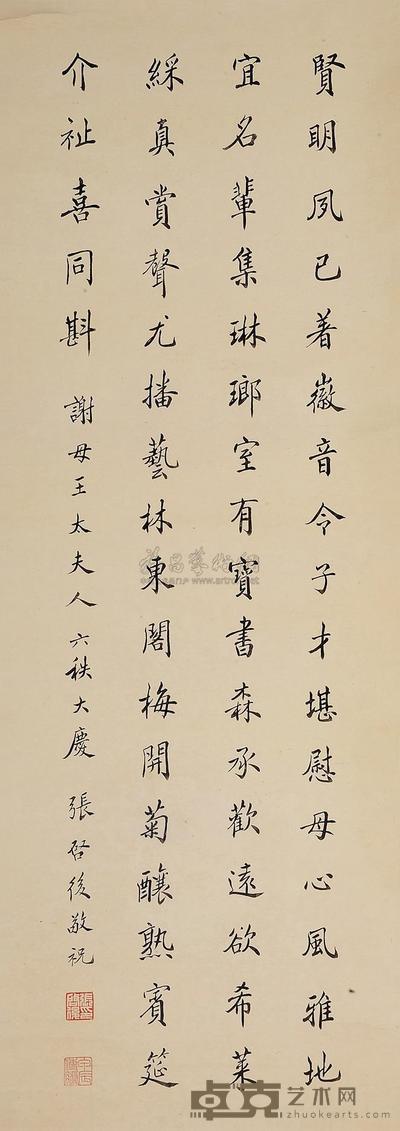 賢明夙已著徽音令子才堪慰母心風雅地
宜名輩集琳瑯室有寶書森承歡遠欲希萊
綵真賞聲尤播藝林東閣梅開菊釀熟賓筵
介祉喜同斟
謝母王太夫人六秩大慶 張啓後敬祝
卓克艺术网
zhuokearts.com